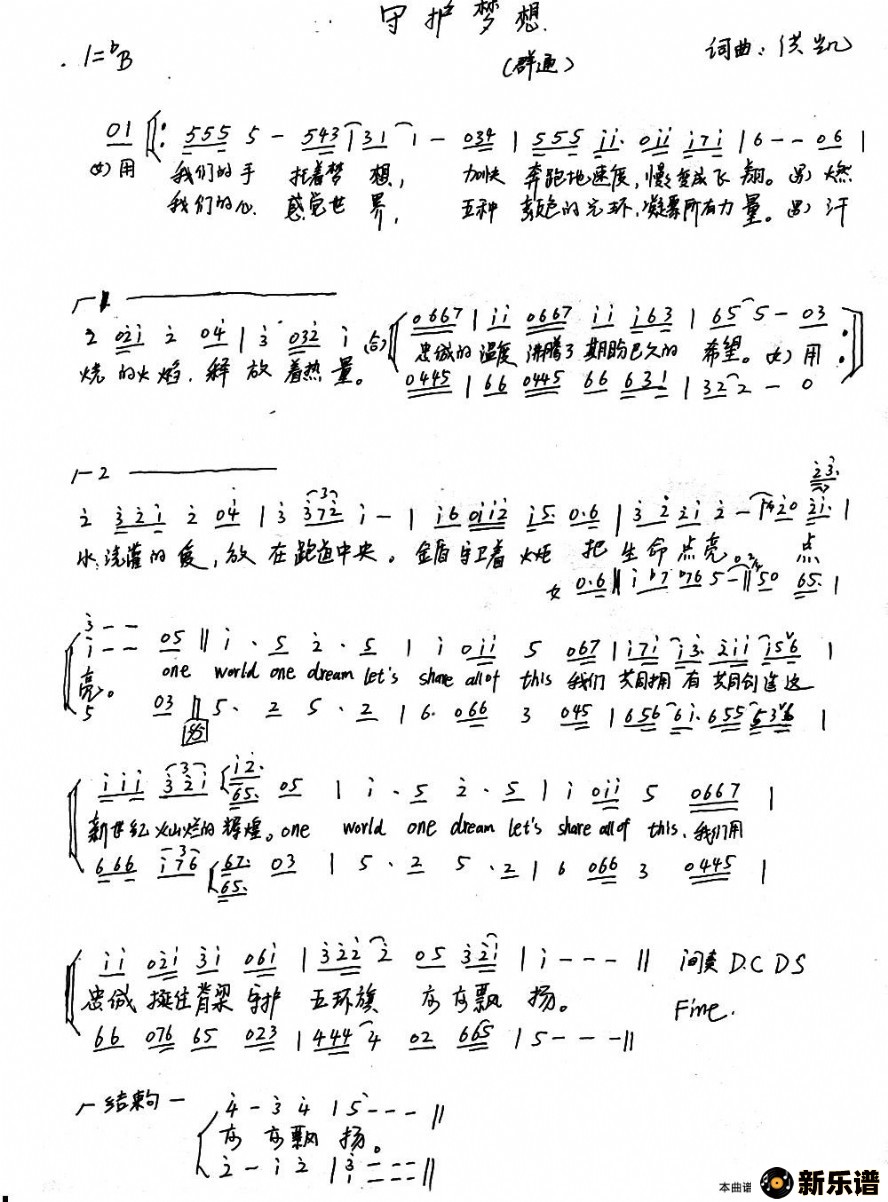 守护梦想
1=♭B
(群通)
词曲:洪凯
01 ‖: 555 5 - 543 | 31 1 - 034 | 555 i i. 0ii i7i | 6 - - 06 |
女)用 我们的手 托着梦 想, 加快 奔跑地速度,慢变成飞 翔。男)燃
我们的心 感觉世 界, 五种 颜色的光环,凝聚所有力 量。男)汗
┌1
2̇ 02̇i 2̇ 04̇ | 3̇ 032̇ i (合) 0667 | ii 0667 ii i63 | 65 5 - 03 :‖
烧 的火焰,释 放 着热 量。 忠诚的 温度 沸腾了 期盼已久的 希望。女)用
0445 | 66 0445 66 631 | 32 2 - 0
┌2
2̇ 3̇2̇i 2̇ 04̇ | 3̇ 3̇72̇ i - | i6 0ii2̇ i5. 0.6 | 3̇ 2̇ 2̇i 2̇ - 2̇0 2̇i. |
2̇3̇.
水 浇灌的爱,放 在跑道中央。金盾守卫着 火炬 把 生命 点亮 点
女 0.6 ‖ i ♭7 076 5 - ‖ 50 65. |
3̇ - -
i - - 05 ‖ i. 5 2̇. 5 | i 0ii 5 067 | i7i i3̇. 2̇ii i56 |
亮。 one world one dream let's share all of this 我们 共同拥 有 共同创造这
5 03 ‖ 5. 2 5. 2 | 6. 066 3 045 | 656 6i. 655 536 |
iii 3̇2̇i i2̇. 65. 05 | i. 5 2̇. 5 | i 0ii 5 0667 |
新世纪 灿烂的 辉煌。one world one dream let's share all of this、我们用
666 i76 67. 65. 03 | 5. 2 5. 2 | 6 066 3 0445 |
ii 02̇i 3̇i 06i | 3̇2̇2̇ 2̇ 05 3̇2̇i | i - - - ‖ 间奏 D.C DS
忠诚 挺住 脊梁 守护 五环旗 方方飘 扬。 Fine.
66 076 65 023 | 444 4 02 665 | 5 - - - ‖
┌结束句 -
4̇ - 3̇ 4̇ | 5̇ - - - ‖
方 方飘 扬。
2̇ - i 2̇ | 3̇ - - - ‖
i - - -
本曲谱 新乐谱